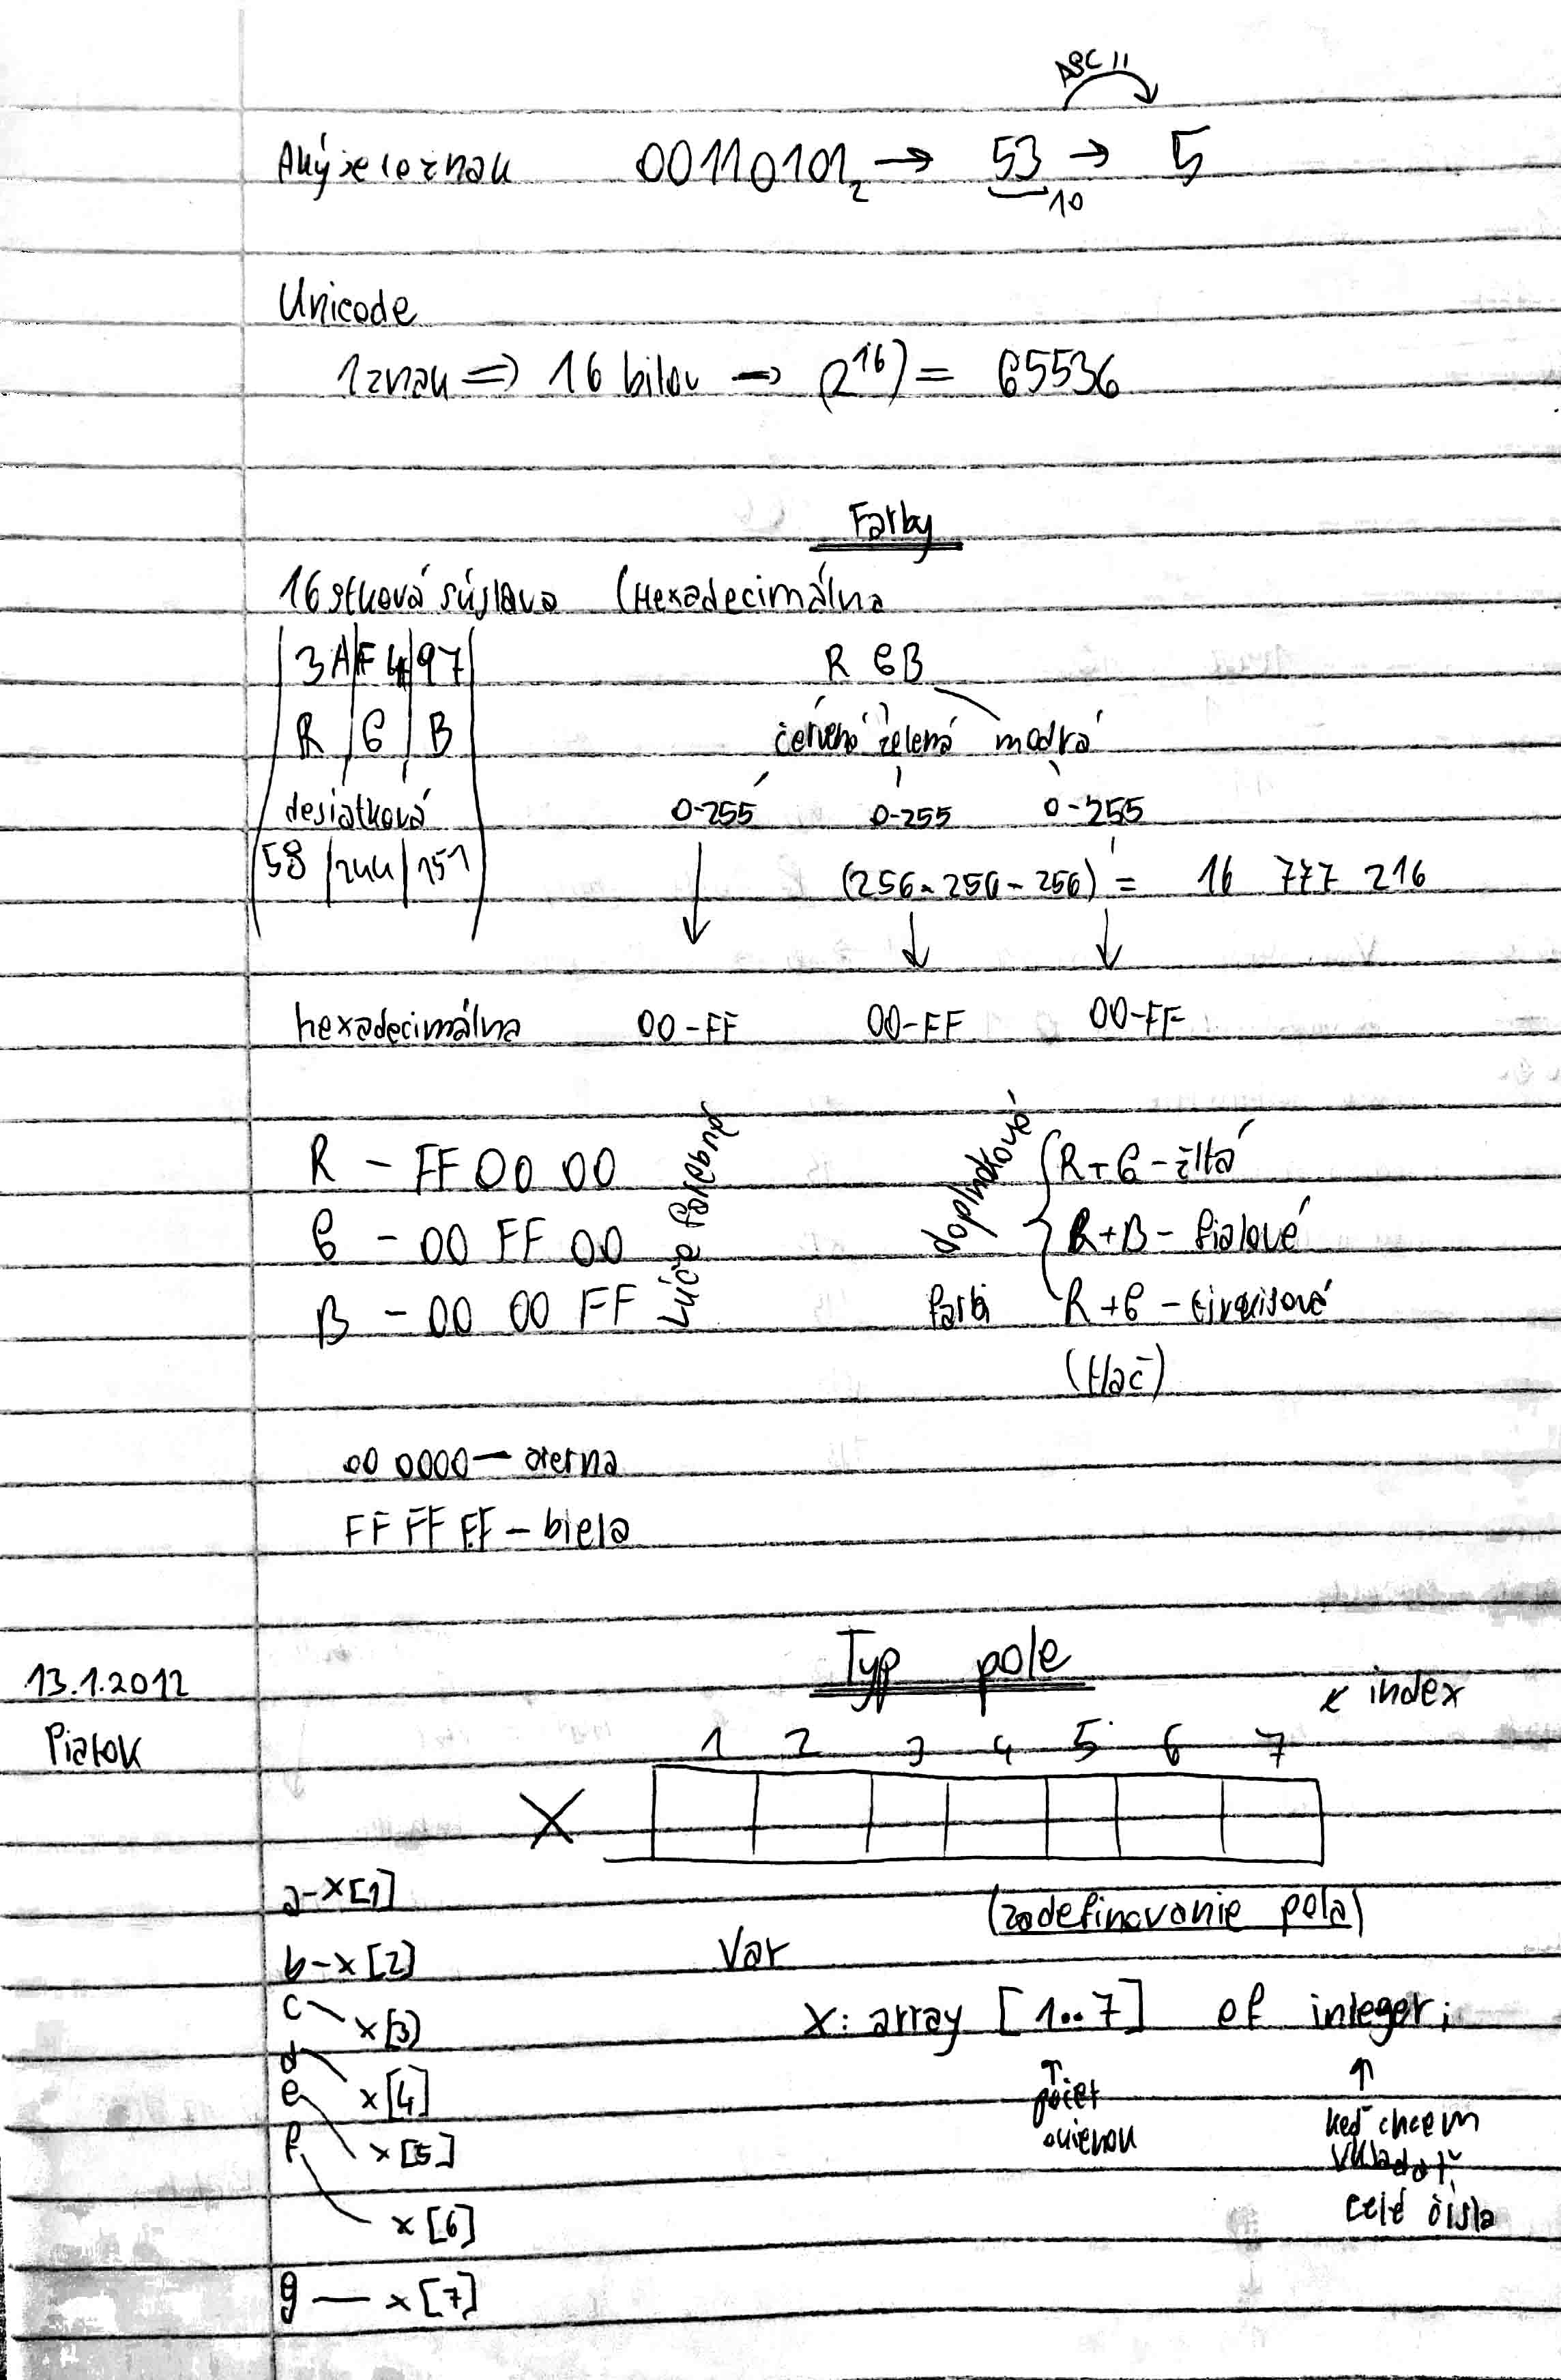 ASCII
Aký je to znak 00110101₂ → 53₁₀ → 5
Unicode
1 znak ⇒ 16 bitov → (2¹⁶) = 65536
Farby
16stková sústava (Hexadecimálna
3A|F4|97 R G B
R|G|B červená zelená modrá
desiatková 0-255 0-255 0-255
58|244|151 (256 · 256 · 256) = 16 777 216
hexadecimálna 00-FF 00-FF 00-FF
R - FF 00 00
G - 00 FF 00
B - 00 00 FF
Lúče farebné
doplnkové
farbi
R+G - žltá
R+B - fialové
R+G - tirquisové
(tlač)
00 0000 - čierna
FF FF FF - biela
Typ pole
13.1.2012
Piatok
← index
1 2 3 4 5 6 7
X
a - x[1]
(zadefinovanie pola)
b - x[2] Var
c - x[3] X: array [1..7] of integer;
d - x[4] ↑ počet ↑
e - x[5] keď chcem
f - x[6] vkladať celé čísla
g - x[7]